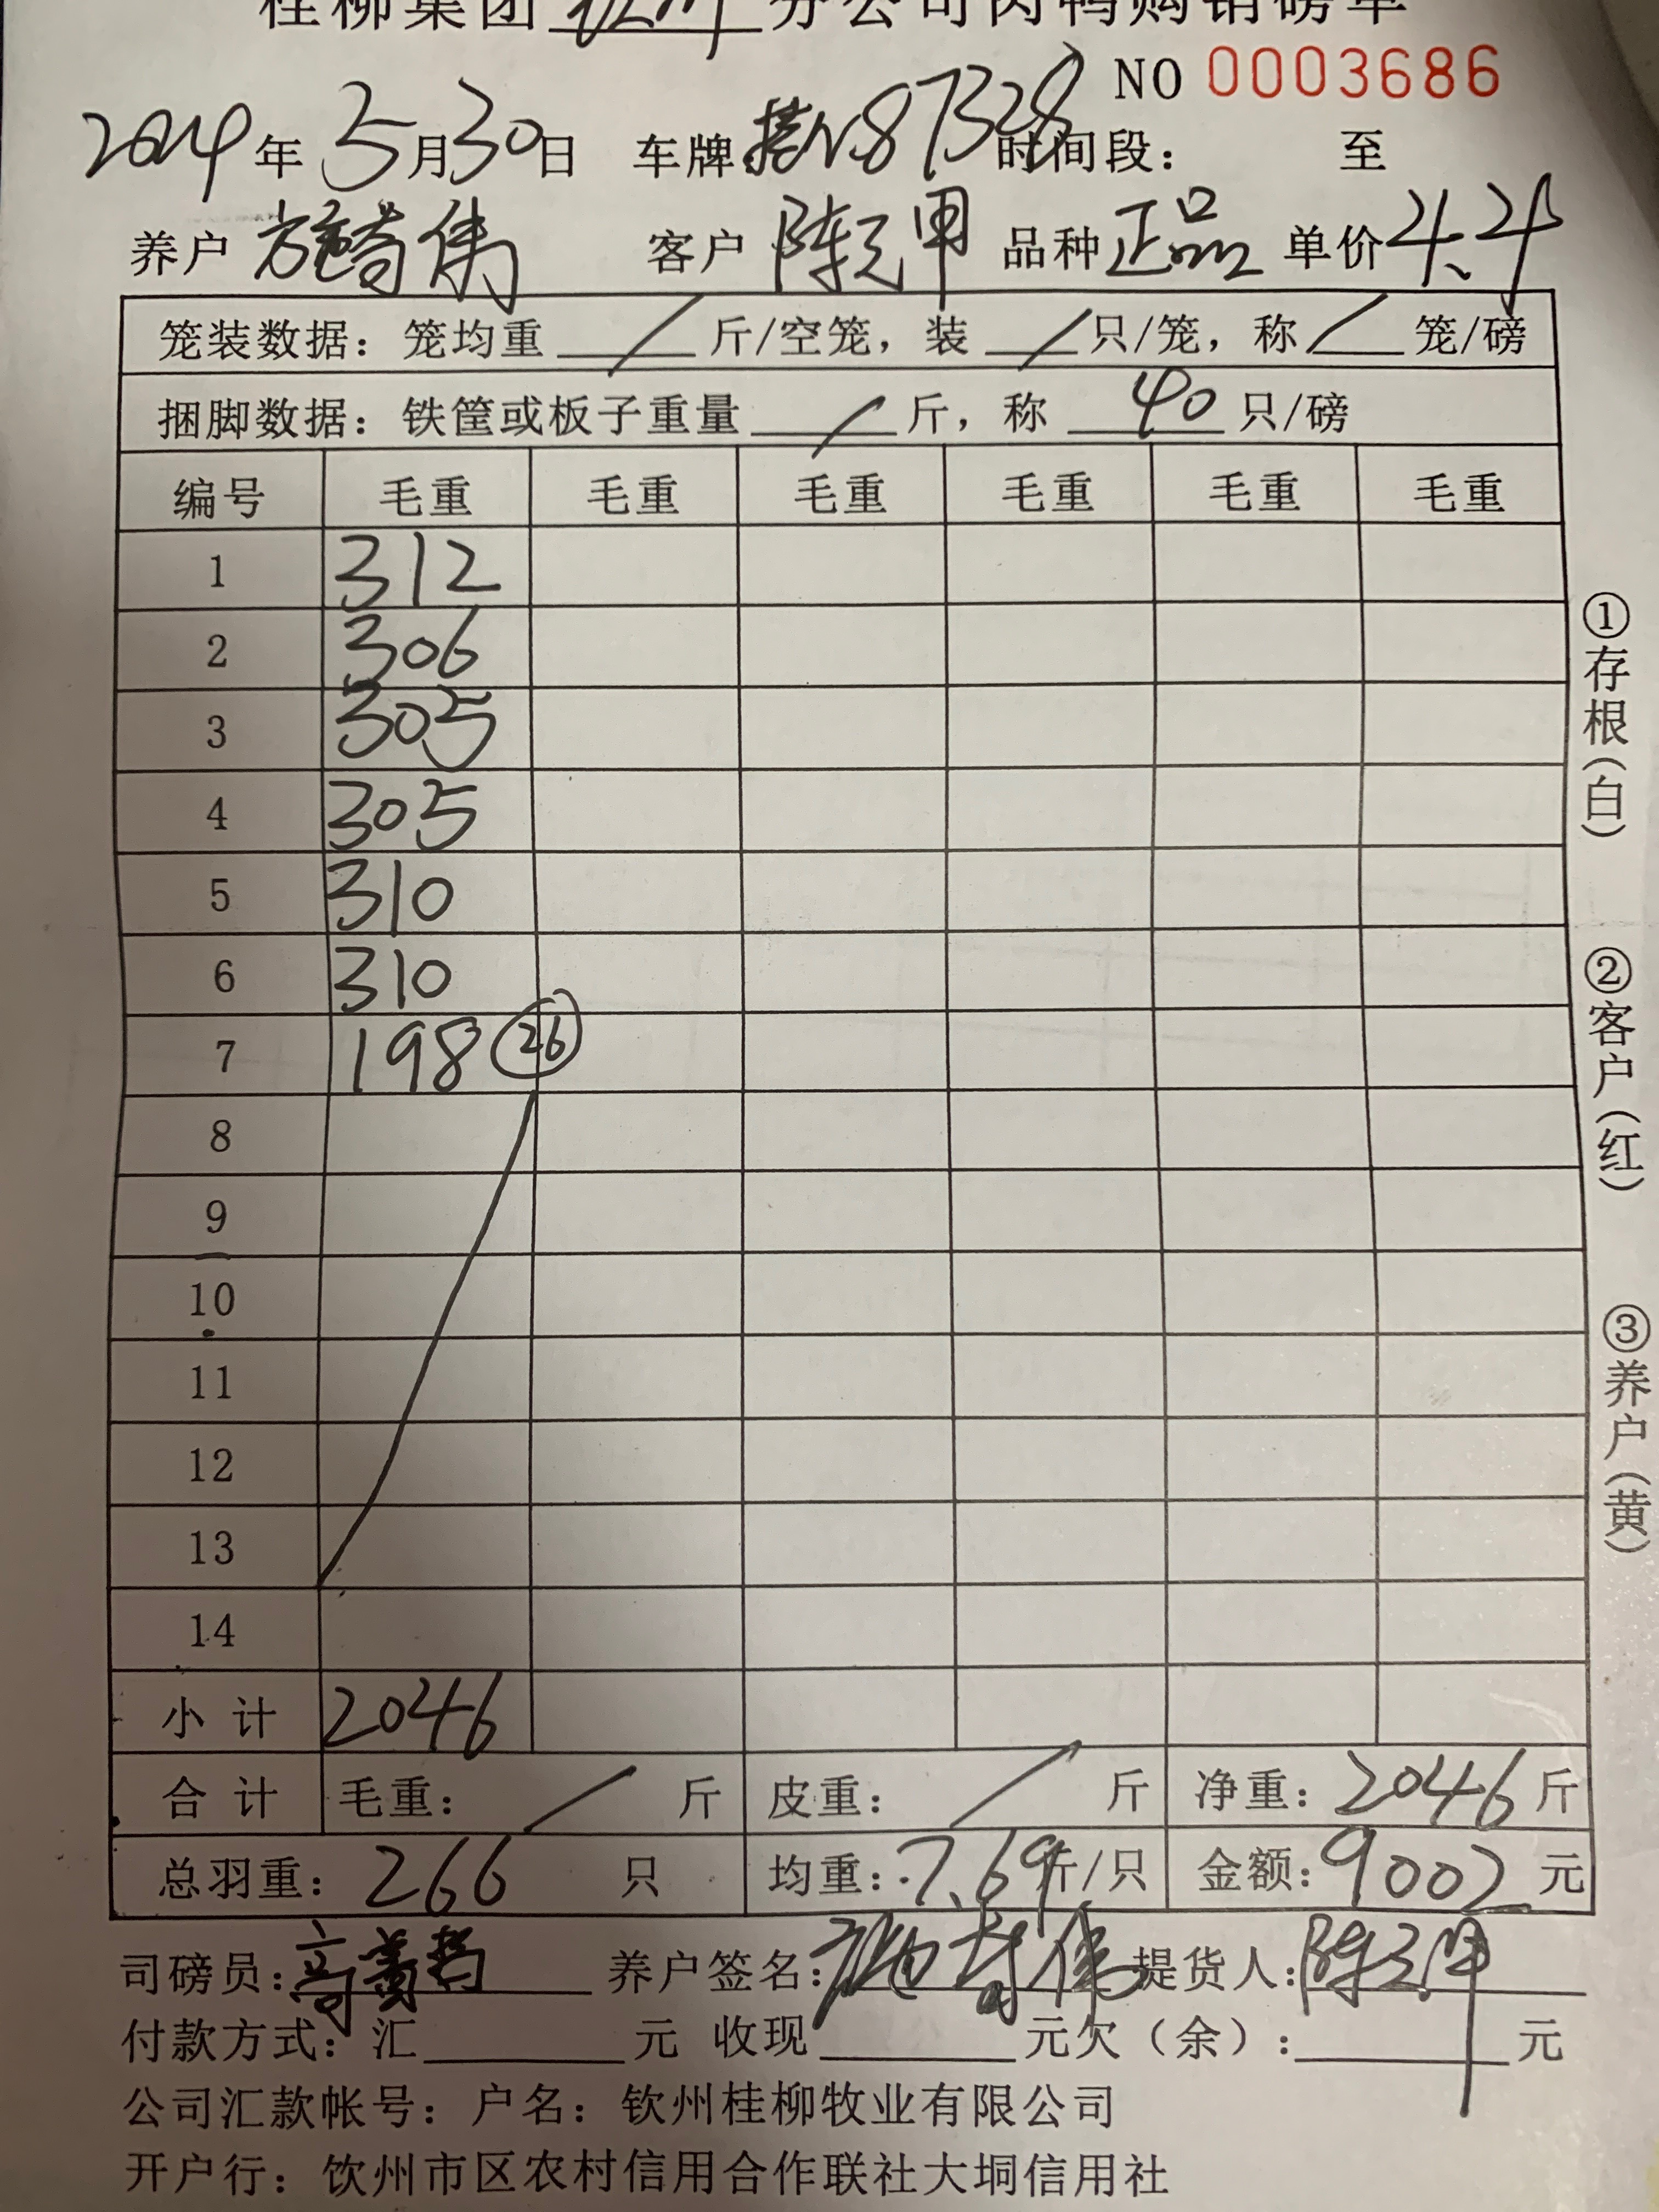 桂柳集团 钦州 分公司肉鸭购销磅单
NO 0003686
2024年5月30日 车牌:桂N87328 时间段: 至
养户 施奇伟 客户 陈元甲 品种 正品 单价 4.4
笼装数据: 笼均重 / 斤/空笼, 装 / 只/笼, 称 / 笼/磅
捆脚数据: 铁筐或板子重量 / 斤, 称 40 只/磅
编号 毛重 毛重 毛重 毛重 毛重 毛重
1 312
2 306
3 305
4 305
5 310
6 310
7 198 26
8
9
10
11
12
13
14
小计 2046
合计 毛重: / 斤 皮重: / 斤 净重: 2046 斤
总羽重: 266 只 均重: 7.69 斤/只 金额: 9002 元
司磅员: 养户签名: 施奇伟 提货人: 陈元甲
付款方式: 汇 元 收现 元欠(余): 元
公司汇款帐号: 户名: 钦州桂柳牧业有限公司
开户行: 饮州市区农村信用合作联社大垌信用社
①存根(白)
②客户(红)
③养户(黄)